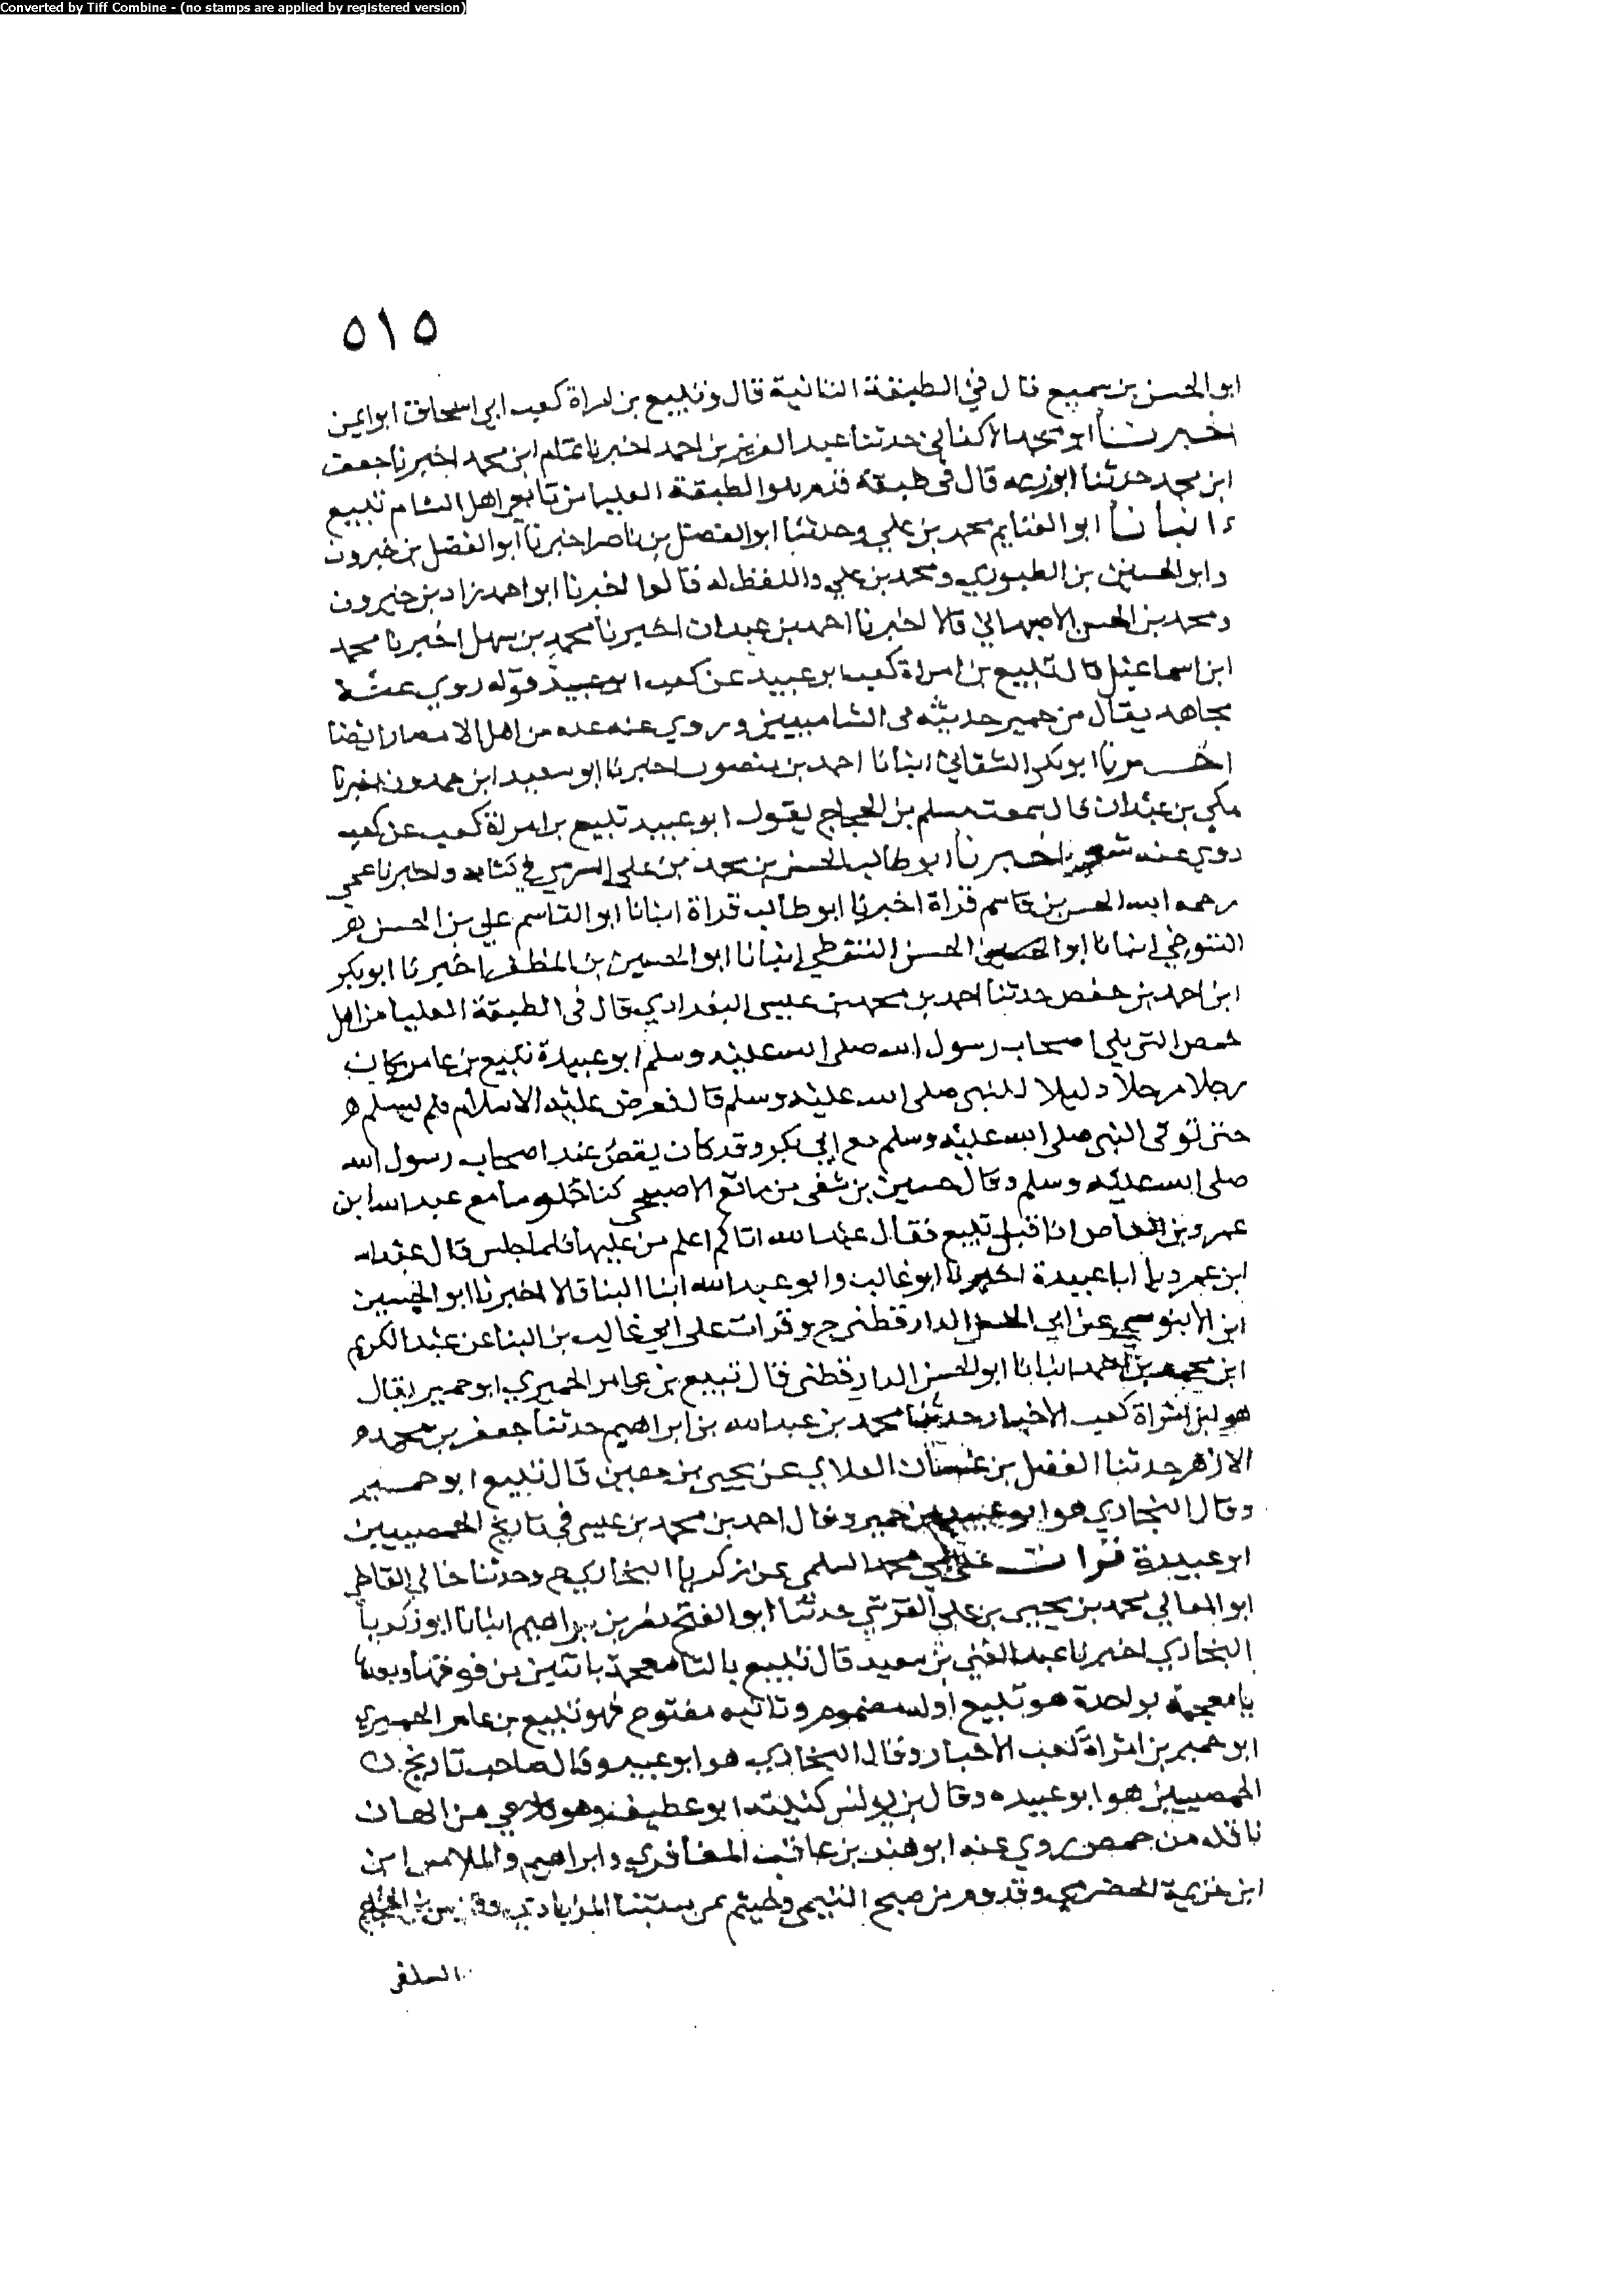 Converted by Tiff Combine - (no stamps are applied by registered version)
٥١٥
ابو الحسن بن سميع قال في الطبقة الثانية قال وتبيع بن امراة كعب ابي اسحاق ابوايمن
اخبرنا ابو محمد الاكفاني حدثنا عبد العزيز بن احمد اخبرنا تمام ابن محمد اخبرنا جعفر
ابن محمد حدثنا ابوزرعه قال في طبقة قدم تلوا الطبقة العليا من تابعي اهل الشام تبيع
انبانا ابو الغنايم محمد بن علي وحدثنا ابو الفضل بن ناصر اخبرنا ابو الفضل بن خيرون
وابو الحسين بن الطيوري ومحمد بن علي واللفظ له قالوا اخبرنا ابو احمد زاد بن خيرون
ومحمد بن الحسن الاصبهاني قالا اخبرنا احمد بن عبدان اخبرنا محمد بن سهل اخبرنا محمد
ابن اسماعيل قال تبيع بن امراة كعب ابو عبيد عن كعب قوله روي عنه
مجاهد يقال من حمير حديثه في الشاميين وروي عنه عده من اهل الامصار ايضا
اخبرنا ابو بكر الشقاني انبانا احمد بن منصور اخبرنا ابو سعيد ابن حمدون اخبرنا
مكي بن عبدان قال سمعت مسلم بن الحجاج يقول ابو عبيد تبيع بن امراة كعب عن كعب
روي عنه اخبرنا ابو طالب الحسين بن محمد بن علي في كتابه واخبرنا عمي
رحمه الله الحسن بن قاسم قراة اخبرنا ابو طالب قراة انبانا ابو القاسم علي بن الحسن
التنوخي انبانا ابو الحسن انبانا ابو الحسين بن المظفر اخبرنا ابو بكر
ابن احمد بن حفص حدثنا احمد بن محمد بن عيسى البغدادي قال في الطبقة العليا من اهل
حمص التي يلي اصحاب رسول الله صلى الله عليه وسلم ابو عبيدة تبيع بن عامر كان
رجلا مرحلا دليلا للنبي صلى الله عليه وسلم قال فعرض عليه الاسلام فلم يسلم ه
حتى توفى النبي صلى الله عليه وسلم مع ابي بكر وقد كان يقص عند اصحاب رسول الله
صلى الله عليه وسلم وقال حسين بن شفى بن ماتع الاصبحي كنا جلوسا مع عبد الله ابن
عمرو بن العاص اذا قبل تبيع فقال عبد الله اتاكم اعلم من عليها فلما جلس قال عبد الله
ابن عمرو يا ابا عبيدة اخبرنا ابو غالب وابو عبد الله ابنا البنا قالا اخبرنا ابو الحسين
ابن الابنوسي عن ابي الحسن الدارقطني ح وقرات على ابي غالب بن البنا عن عبد الكريم
ابن محمد بن احمد انبانا ابو الحسن الدارقطني قال تبيع بن عامر الحميري ابو حمير يقال
هو ابن امراة كعب الاخبار حدثنا محمد بن عبد الله بن ابراهيم حدثنا جعفر بن محمد ه
الازهر حدثنا الفضل بن غسان الغلابي عن يحيى بن معين قال تبيع ابو حمير
وقال البخاري هو ابو عبيد من حمير وقال احمد بن محمد بن عيسى في تاريخ الحمصيين
ابو عبيدة قرات على ابي محمد السلمي عن ابي زكريا البخاري ح وحدثنا خالي القاضي
ابو المعالي محمد بن يحيى بن علي القرشي حدثنا ابو الفتح نصر بن ابراهيم انبانا ابو زكريا
البخاري اخبرنا عبد الغني بن سعيد قال تبيع بالتا معجمة باثنتين من فوقها وبعدها
يا معجمة بواحدة هو تبيع اوله مضموم وثانيه مفتوح فهو تبيع بن عامر الحميري
ابو حمير بن امراة كعب الاحبار وقال البخاري هو ابو عبيد وقال صاحب تاريخ
الحمصيين هو ابو عبيده وقال بن يونس كنيته ابو عطيف وهو من الهان
ناقله من حمص روي عنه ابو هند بن عاقب المعافري وابراهيم والملامس ابن
ابن خزيمة الحضرمي وقدوم بن صبح